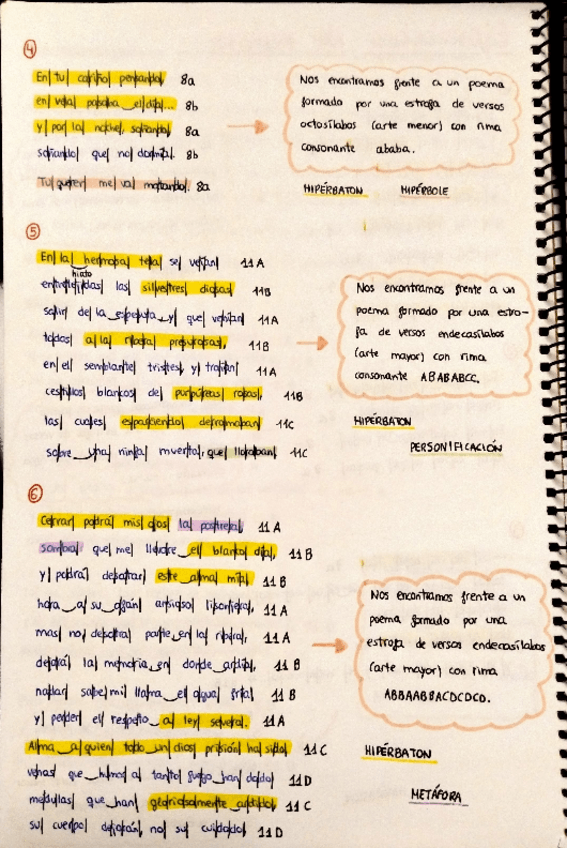 4
En tu cariño pensando, 8a
en vela pasaba el día... 8b
y por la noche, soñando, 8a
soñando que no dormía. 8b
Tu querer me va matando. 8a
Nos encontramos frente a un poema
formado por una estrofa de versos
octosílabos (arte menor) con rima
consonante ababa.
HIPÉRBATON HIPÉRBOLE
5
En la hermosa tela se veían 11A
hiato
entretejidas las silvestres diosas 11B
salir de la espesura y que venían 11A
todas a la ribera presurosas, 11B
en el semblante tristes, y traían 11A
cestillos blancos de purpúreas rosas, 11B
las cuales esparciendo derramaban 11C
sobre una ninfa muerta, que lloraban 11C
Nos encontramos frente a un
poema formado por una estro-
fa de versos endecasílabos
(arte mayor) con rima
consonante ABABABCC.
HIPÉRBATON
PERSONIFICACIÓN
6
Cerrar podrá mis ojos la postrera 11A
sombra que me llevare el blanco día, 11B
y podrá desatar esta alma mía 11B
hora a su afán ansioso lisonjera, 11A
mas no desotra parte en la ribera, 11A
dejará la memoria en donde ardía, 11B
nadar sabe mi llama el agua fría 11B
y perder el respeto a ley severa. 11A
Alma a quien todo un dios prisión ha sido, 11C
venas que humor a tanto fuego han dado 11D
medulas que han gloriosamente ardido, 11C
su cuerpo dejarán, no su cuidado 11D
Nos encontramos frente a un
poema formado por una
estrofa de versos endecasílabos
(arte mayor) con rima
ABBAABBACDCDCD.
HIPÉRBATON
METÁFORA